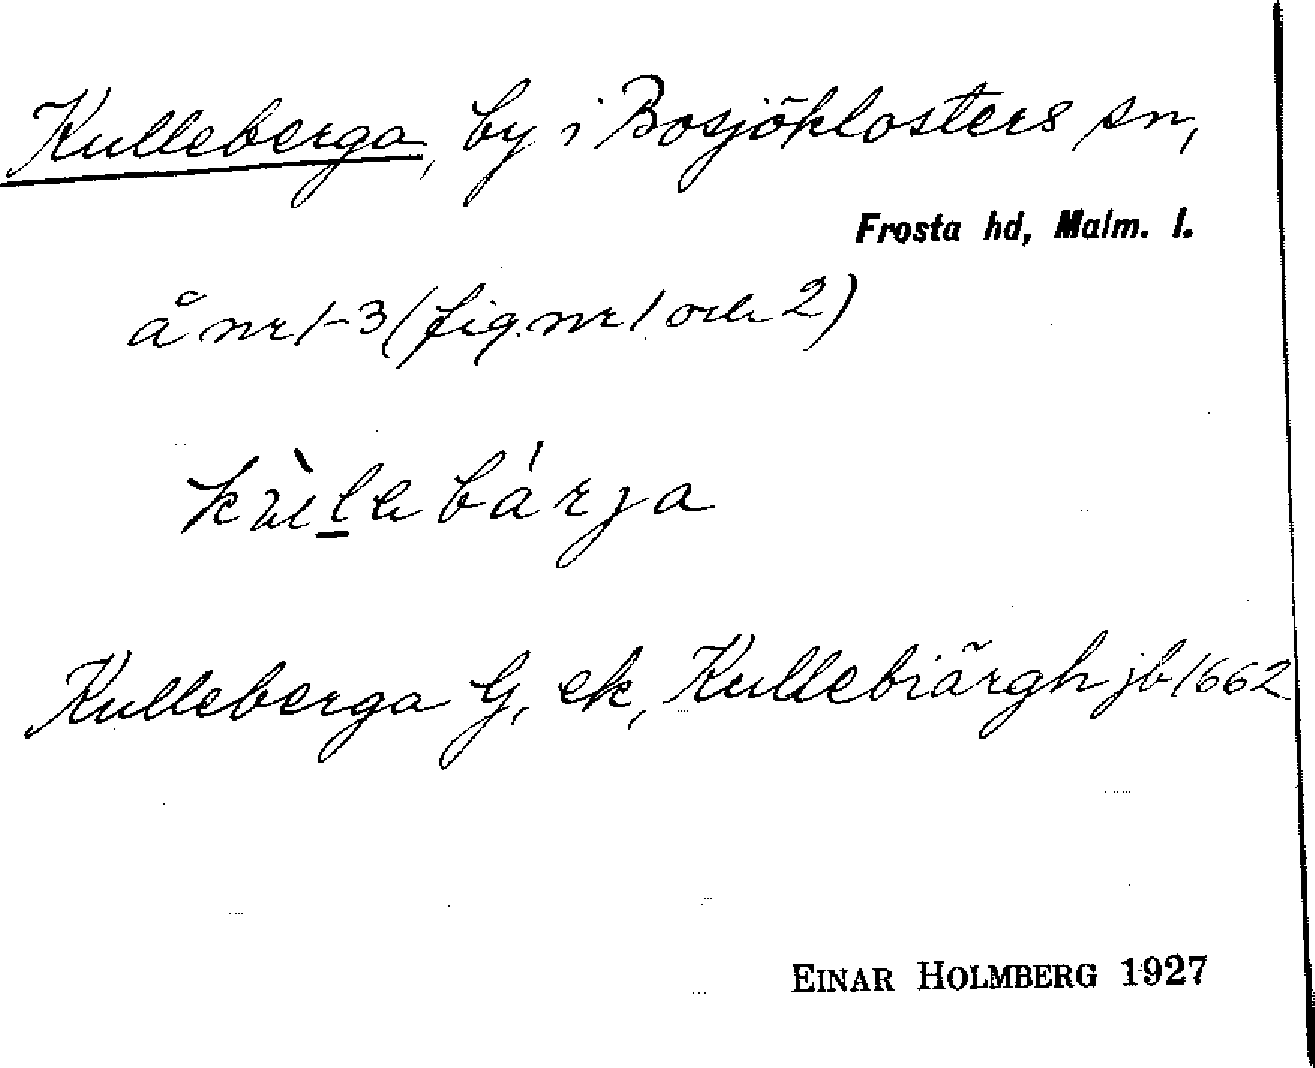 Kulleberga, by i Bosjöklosters sn,
Frosta hd, Malm. l.
å nr 1-3 (fig. nr 1 och 2)
kùlebárja
Kulleberga G, ek, Kullebiärgh jb 1662
EINAR HOLMBERG 1927